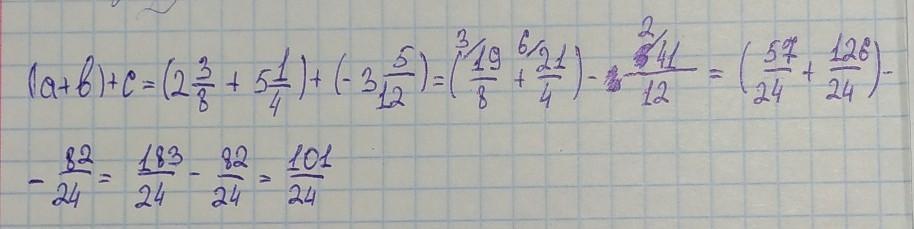 (a+b)+c=(2 3/8 + 5 1/4)+(-3 5/12)=(³⁄19/8 + ⁶⁄21/4) - ²⁄41/12 = (57/24 + 126/24) -
- 82/24 = 183/24 - 82/24 = 101/24